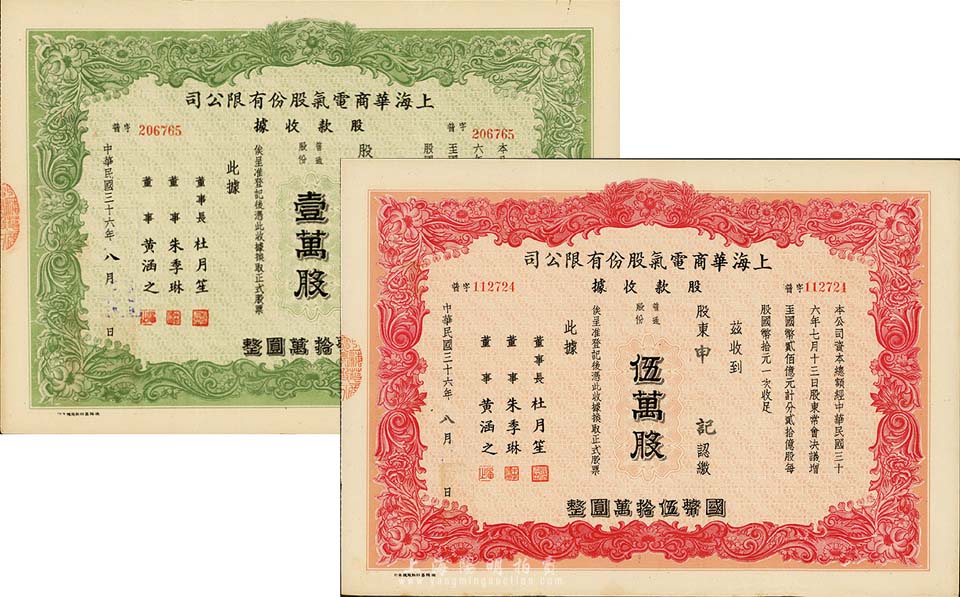 上海華商電氣股份有限公司
股款收據
普字 206765
普字 206765
股
普通股份
壹萬股
俟呈准登記後憑此收據換取正式股票
此據
董事長 杜月笙
董事 朱季琳
董事 黃涵之
中華民國三十六年八月 日
拾萬圓整
上海華商電氣股份有限公司
股款收據
普字 112724
普字 112724
本公司資本總額經中華民國三十
六年七月十三日股東常會決議增
至國幣貳佰億元計分貳拾億股每
股國幣拾元一次收足
茲收到
股東申記認繳
普通股份
伍萬股
國幣伍拾萬圓整
俟呈准登記後憑此收據換取正式股票
此據
董事長 杜月笙
董事 朱季琳
董事 黃涵之
中華民國三十六年八月 日
上海陽明拍賣
www.yangmingauction.com